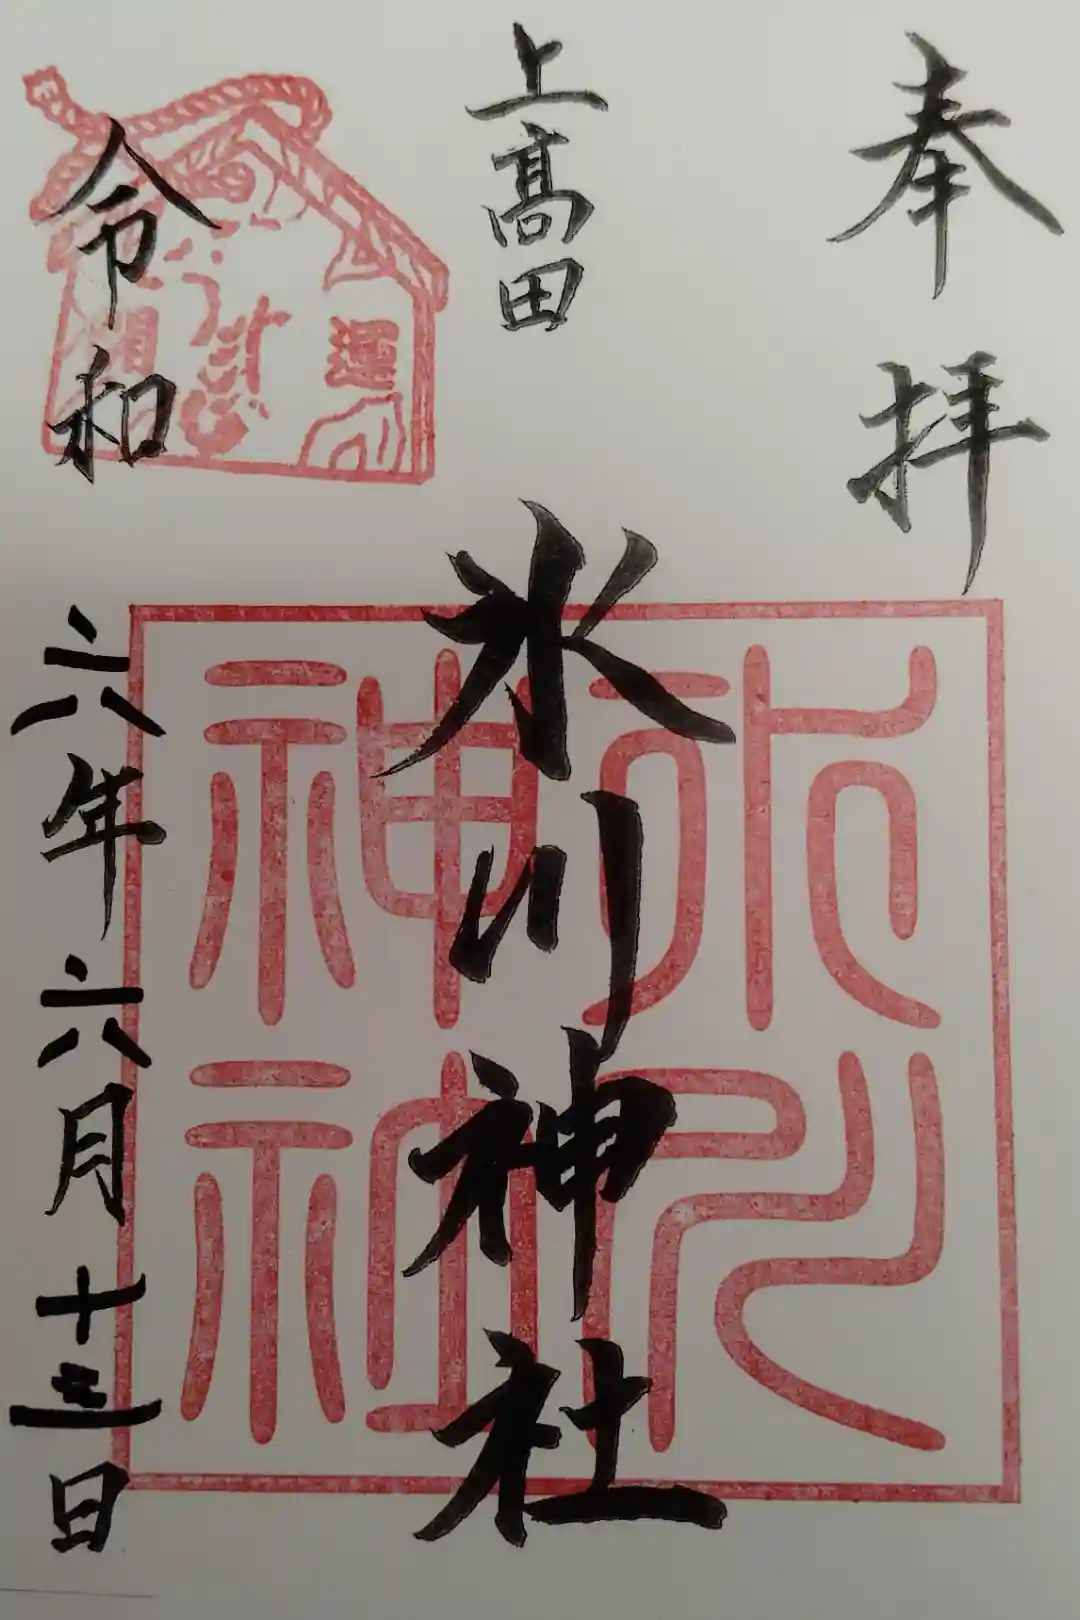 奉拝
上髙田
氷川神社
氷川神社
開運
令和六年六月十三日